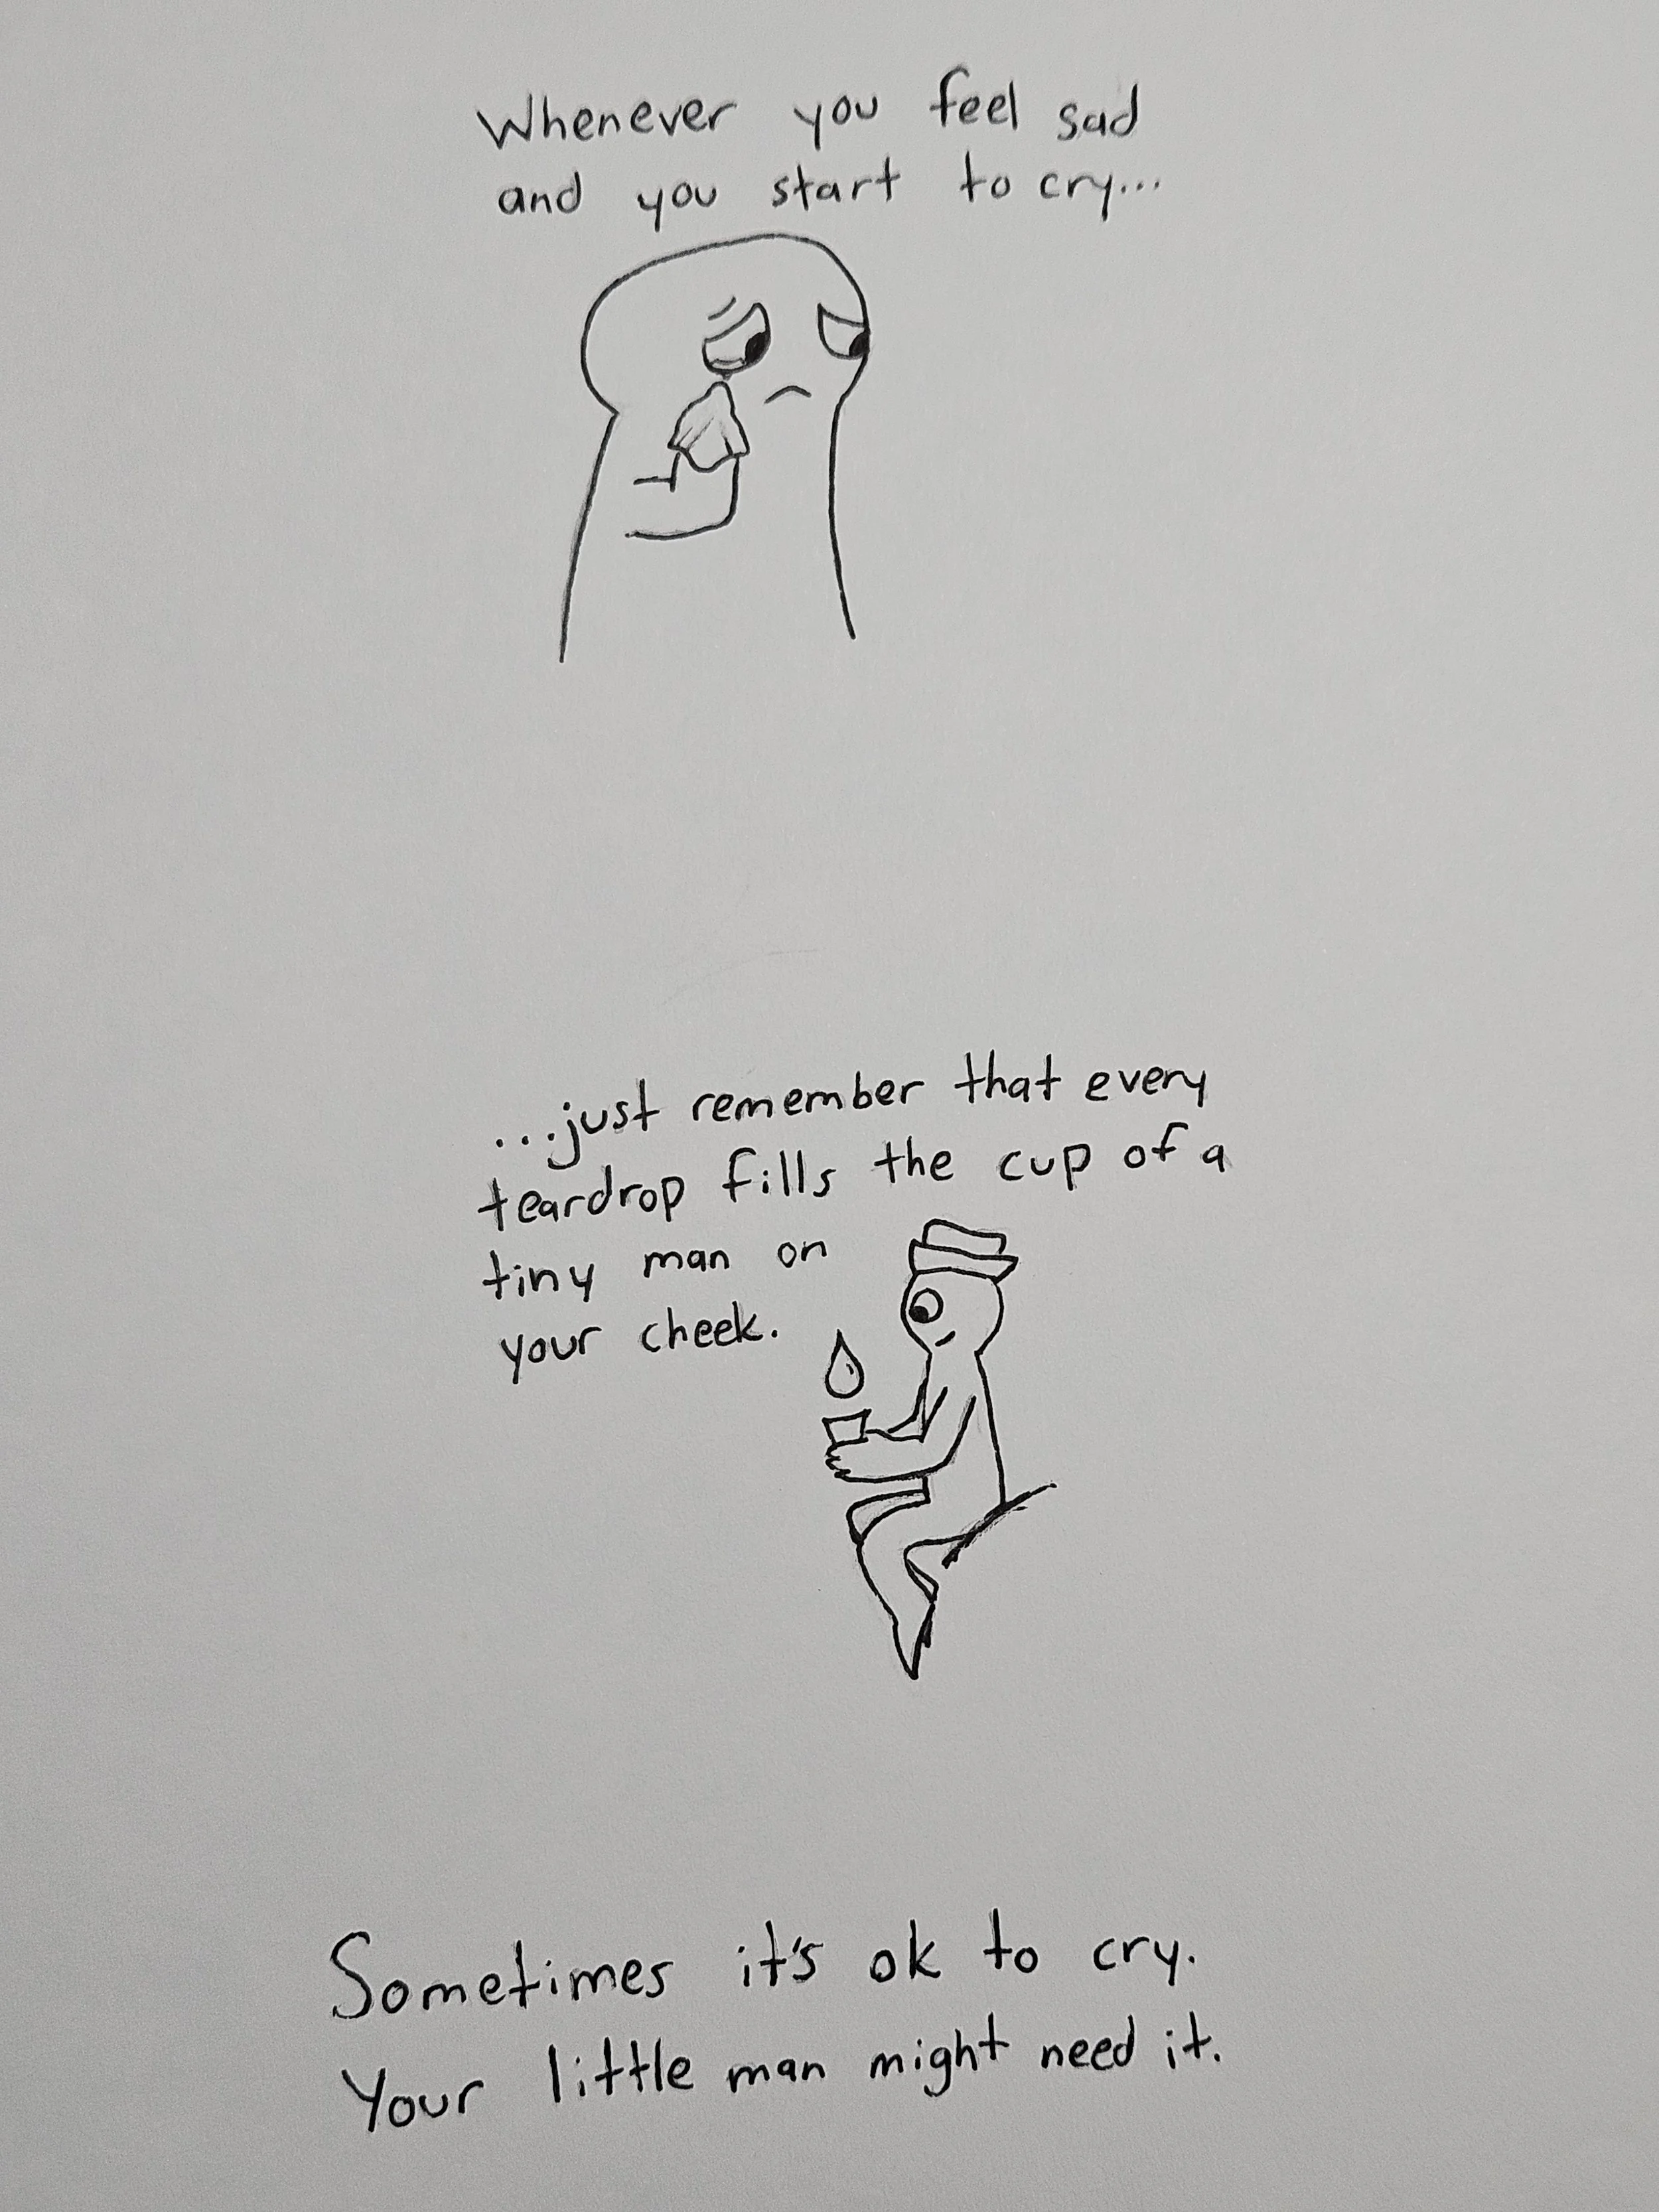 Whenever you feel sad
and you start to cry...
...just remember that every
teardrop fills the cup of a
tiny man on
your cheek.
Sometimes it's ok to cry.
Your little man might need it.